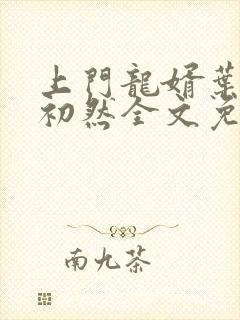 上門龍婿葉
初然全文免
南九茶